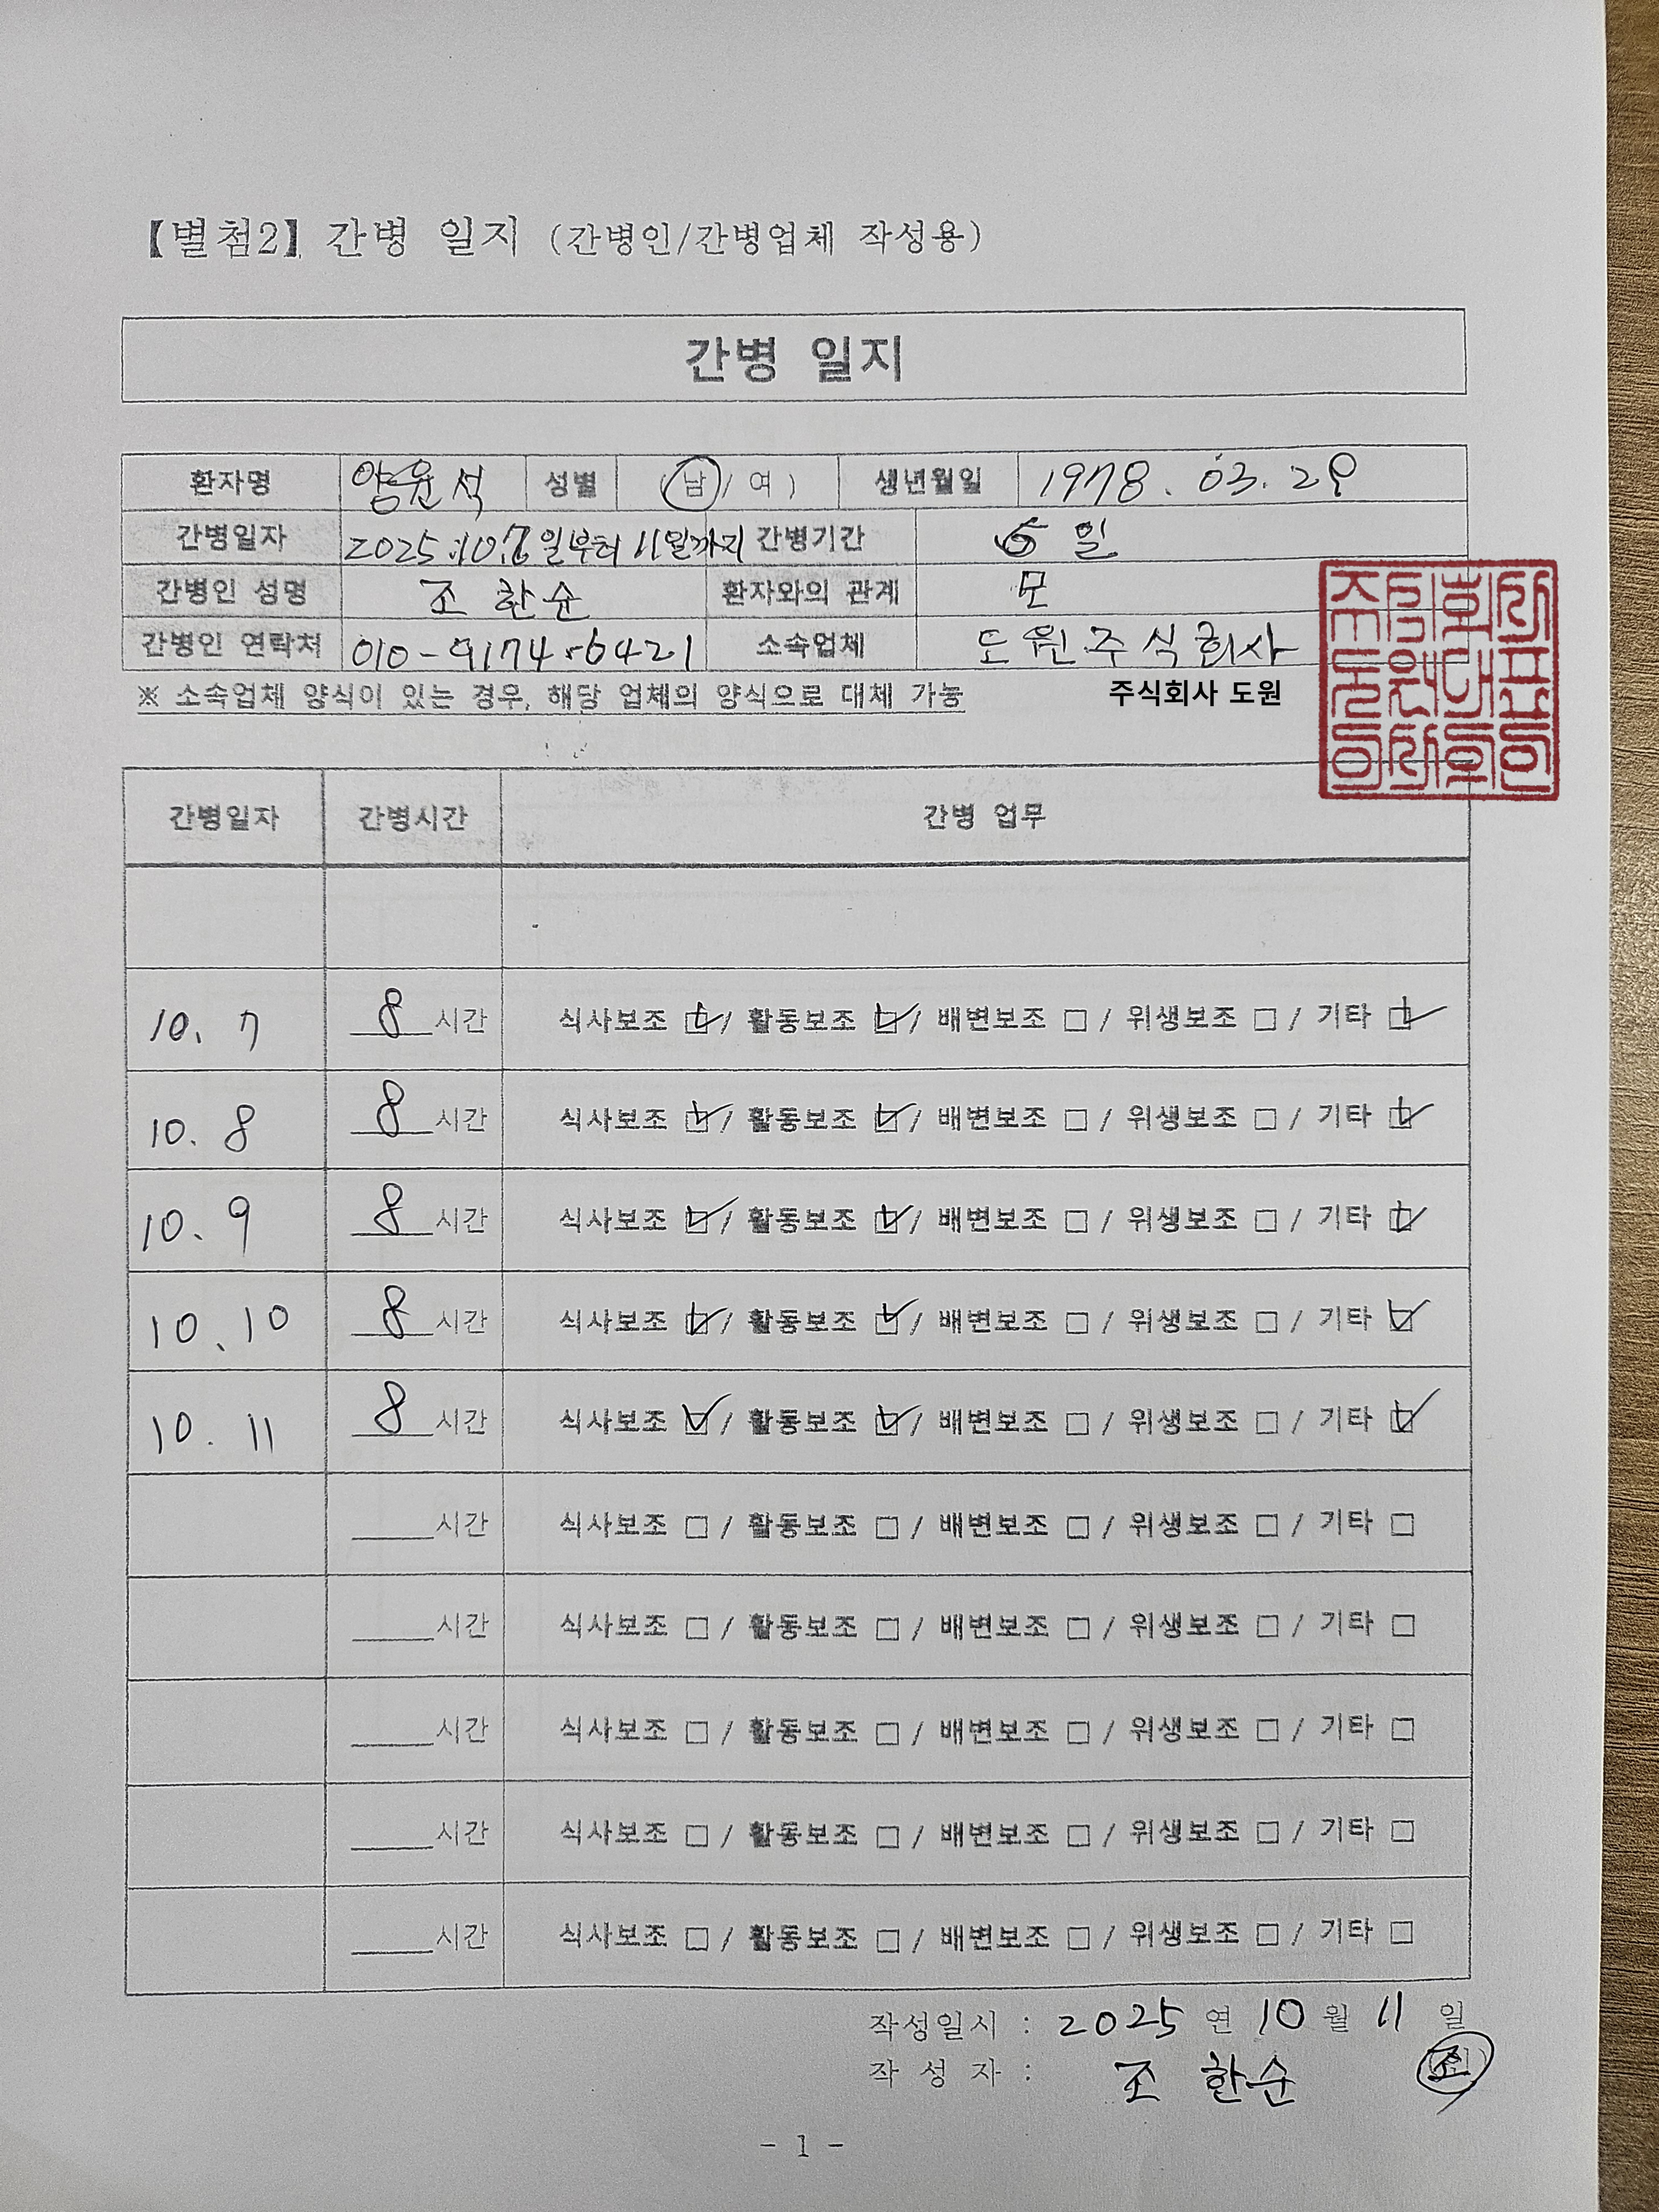 【별첨2】 간병 일지 (간병인/간병업체 작성용)
간병 일지
환자명 양윤석 성별 (남/ 여 ) 생년월일 1978. 03. 28
간병일자 2025.10.7일부터 11일까지 간병기간 5 일
간병인 성명 조 한순 환자와의 관계 모
간병인 연락처 010-9174-6421 소속업체 도원주식회사
※ 소속업체 양식이 있는 경우, 해당 업체의 양식으로 대체 가능 주식회사 도원
간병일자 간병시간 간병 업무
10. 7 8 시간 식사보조 ☑ / 활동보조 ☑ / 배변보조 □ / 위생보조 □ / 기타 ☑
10. 8 8 시간 식사보조 ☑ / 활동보조 ☑ / 배변보조 □ / 위생보조 □ / 기타 ☑
10. 9 8 시간 식사보조 ☑ / 활동보조 ☑ / 배변보조 □ / 위생보조 □ / 기타 ☑
10. 10 8 시간 식사보조 ☑ / 활동보조 ☑ / 배변보조 □ / 위생보조 □ / 기타 ☑
10. 11 8 시간 식사보조 ☑ / 활동보조 ☑ / 배변보조 □ / 위생보조 □ / 기타 ☑
____시간 식사보조 □ / 활동보조 □ / 배변보조 □ / 위생보조 □ / 기타 □
____시간 식사보조 □ / 활동보조 □ / 배변보조 □ / 위생보조 □ / 기타 □
____시간 식사보조 □ / 활동보조 □ / 배변보조 □ / 위생보조 □ / 기타 □
____시간 식사보조 □ / 활동보조 □ / 배변보조 □ / 위생보조 □ / 기타 □
____시간 식사보조 □ / 활동보조 □ / 배변보조 □ / 위생보조 □ / 기타 □
작성일시 : 2025 연 10 월 11 일
작 성 자 : 조 한순 조
- 1 -